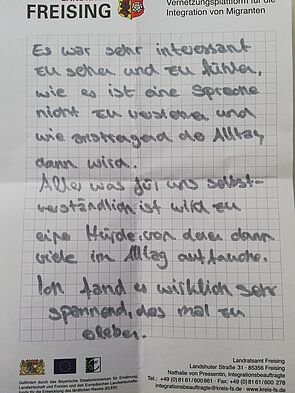 FREISING
Vernetzungsplattform für die
Integration von Migranten
Es war sehr interessant
zu sehen und zu fühlen,
wie es ist eine Sprache
nicht zu verstehen und
wie anstrengend de Alltag
dann wird.
Alles was für uns selbst-
verständlich ist wird zu
eine Hürde, von denen dann
viele im Alltag auftauche.
Ich fand es wirklich sehr
spannend, das mal zu
erleben.
Gefördert durch das Bayerische Staatsministerium für Ernährung,
Landwirtschaft und Forsten und den Europäischen Landwirtschafts-
fonds für die Entwicklung des ländlichen Raums (ELER)
Landratsamt Freising
Landshuter Straße 31 - 85356 Freising
Nathalie von Pressentin, Integrationsbeauftragte
Tel.: +49 (0) 81 61/600 861 · Fax: +49 (0) 81 61/600 278
integrationsbeauftragte@kreis-fs.de · www.kreis-fs.de